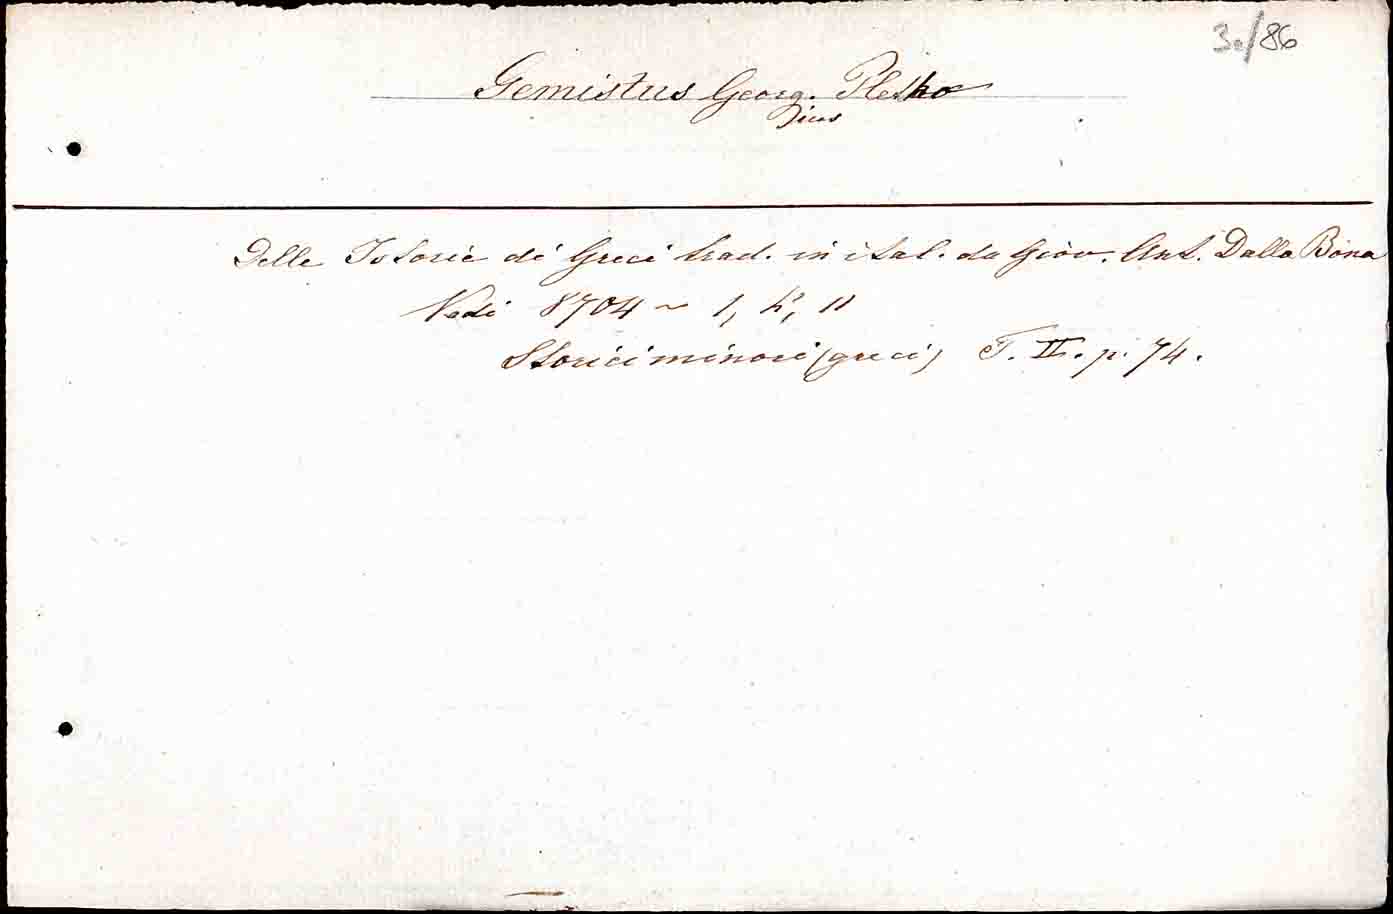 3./86
Gemistus Georg. Pletho
Delle Istorie di Greci trad. in ital. da Giov. Ant. Dalla Bona
Vedi 8704 ~ 1, h, 11
Storici minori (greci) T. II. p. 74.